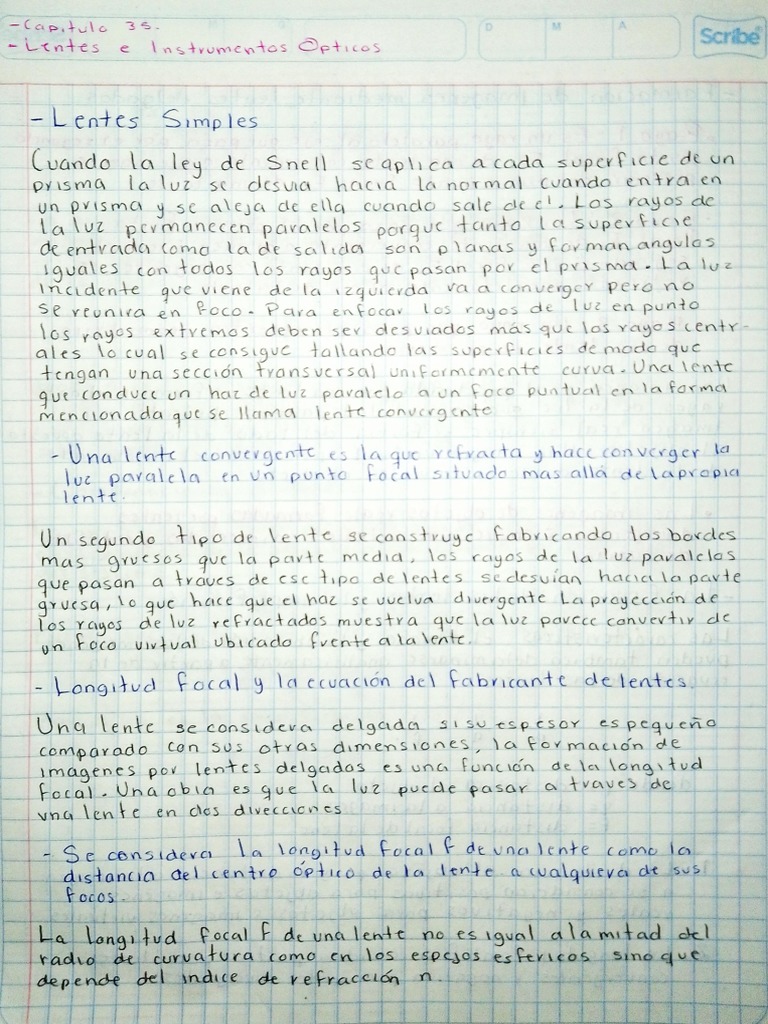 - Capitulo 35.
- Lentes e Instrumentos Opticos
D M A
Scribe
- Lentes Simples
Cuando la ley de Snell se aplica a cada superficie de un
prisma la luz se desvia hacia la normal cuando entra en
un prisma y se aleja de ella cuando sale de el. Los rayos de
la luz permanecen paralelos porque tanto la superficie
de entrada como la de salida son planas y forman angulos
iguales con todos los rayos que pasan por el prisma. La luz
incidente que viene de la izquierda va a converger pero no
se reunira en foco. Para enfocar los rayos de luz en punto
los rayos extremos deben ser desviados más que los rayos centr-
ales lo cual se consigue tallando las superficies de modo que
tengan una sección transversal uniformemente curva. Una lente
que conduce un haz de luz paralelo a un foco puntual en la forma
mencionada que se llama lente convergente
- Una lente convergente es la que refracta y hace converger la
luz paralela en un punto focal situado mas allá de la propia
lente.
Un segundo tipo de lente se construye fabricando los bordes
mas gruesos que la parte media, los rayos de la luz paralelos
que pasan a traves de ese tipo de lentes se desvían hacia la parte
gruesa, lo que hace que el haz se vuelva divergente La proyección de
los rayos de luz refractados muestra que la luz parece convertir de
un foco virtual ubicado frente a la lente.
- Longitud focal y la ecuación del fabricante de lentes.
Una lente se considera delgada si su espesor es pequeño
comparado con sus otras dimensiones, la formación de
imagenes por lentes delgados es una función de la longitud
focal. Una obia es que la luz puede pasar a traves de
una lente en dos direcciones
- Se considera la longitud focal f de una lente como la
distancia del centro óptico de la lente a cualquiera de sus
focos.
La longitud focal f de una lente no es igual a la mitad del
radio de curvatura como en los espejos esfericos sino que
depende del indice de refracción n.